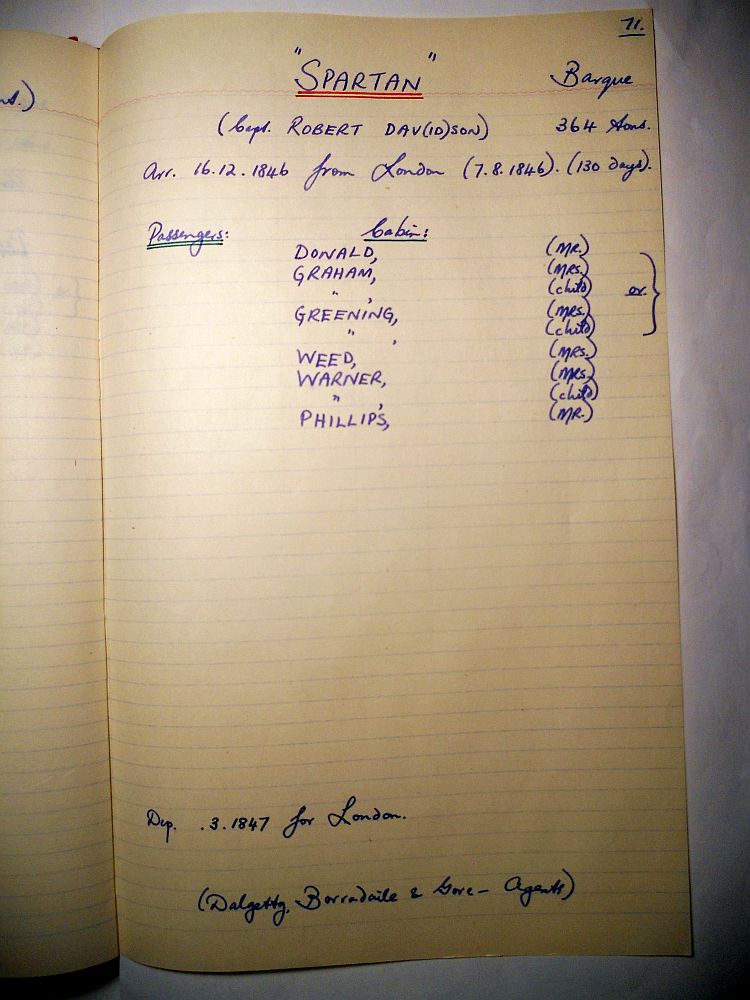 71.
"SPARTAN" Barque
(Capt. ROBERT DAV(ID)SON) 364 tons.
Arr. 16.12.1846 from London (7.8.1846). (130 days).
Passengers: Cabin:
DONALD, (MR.)
GRAHAM, (MRS.)
" , (child) or.
GREENING, (MRS.)
" , (child)
WEED, (MRS.)
WARNER, (MRS.)
" , (child)
PHILLIPS, (MR.)
Dep. .3.1847 for London.
(Dalgetty, Borradaile & Gore - Agents)